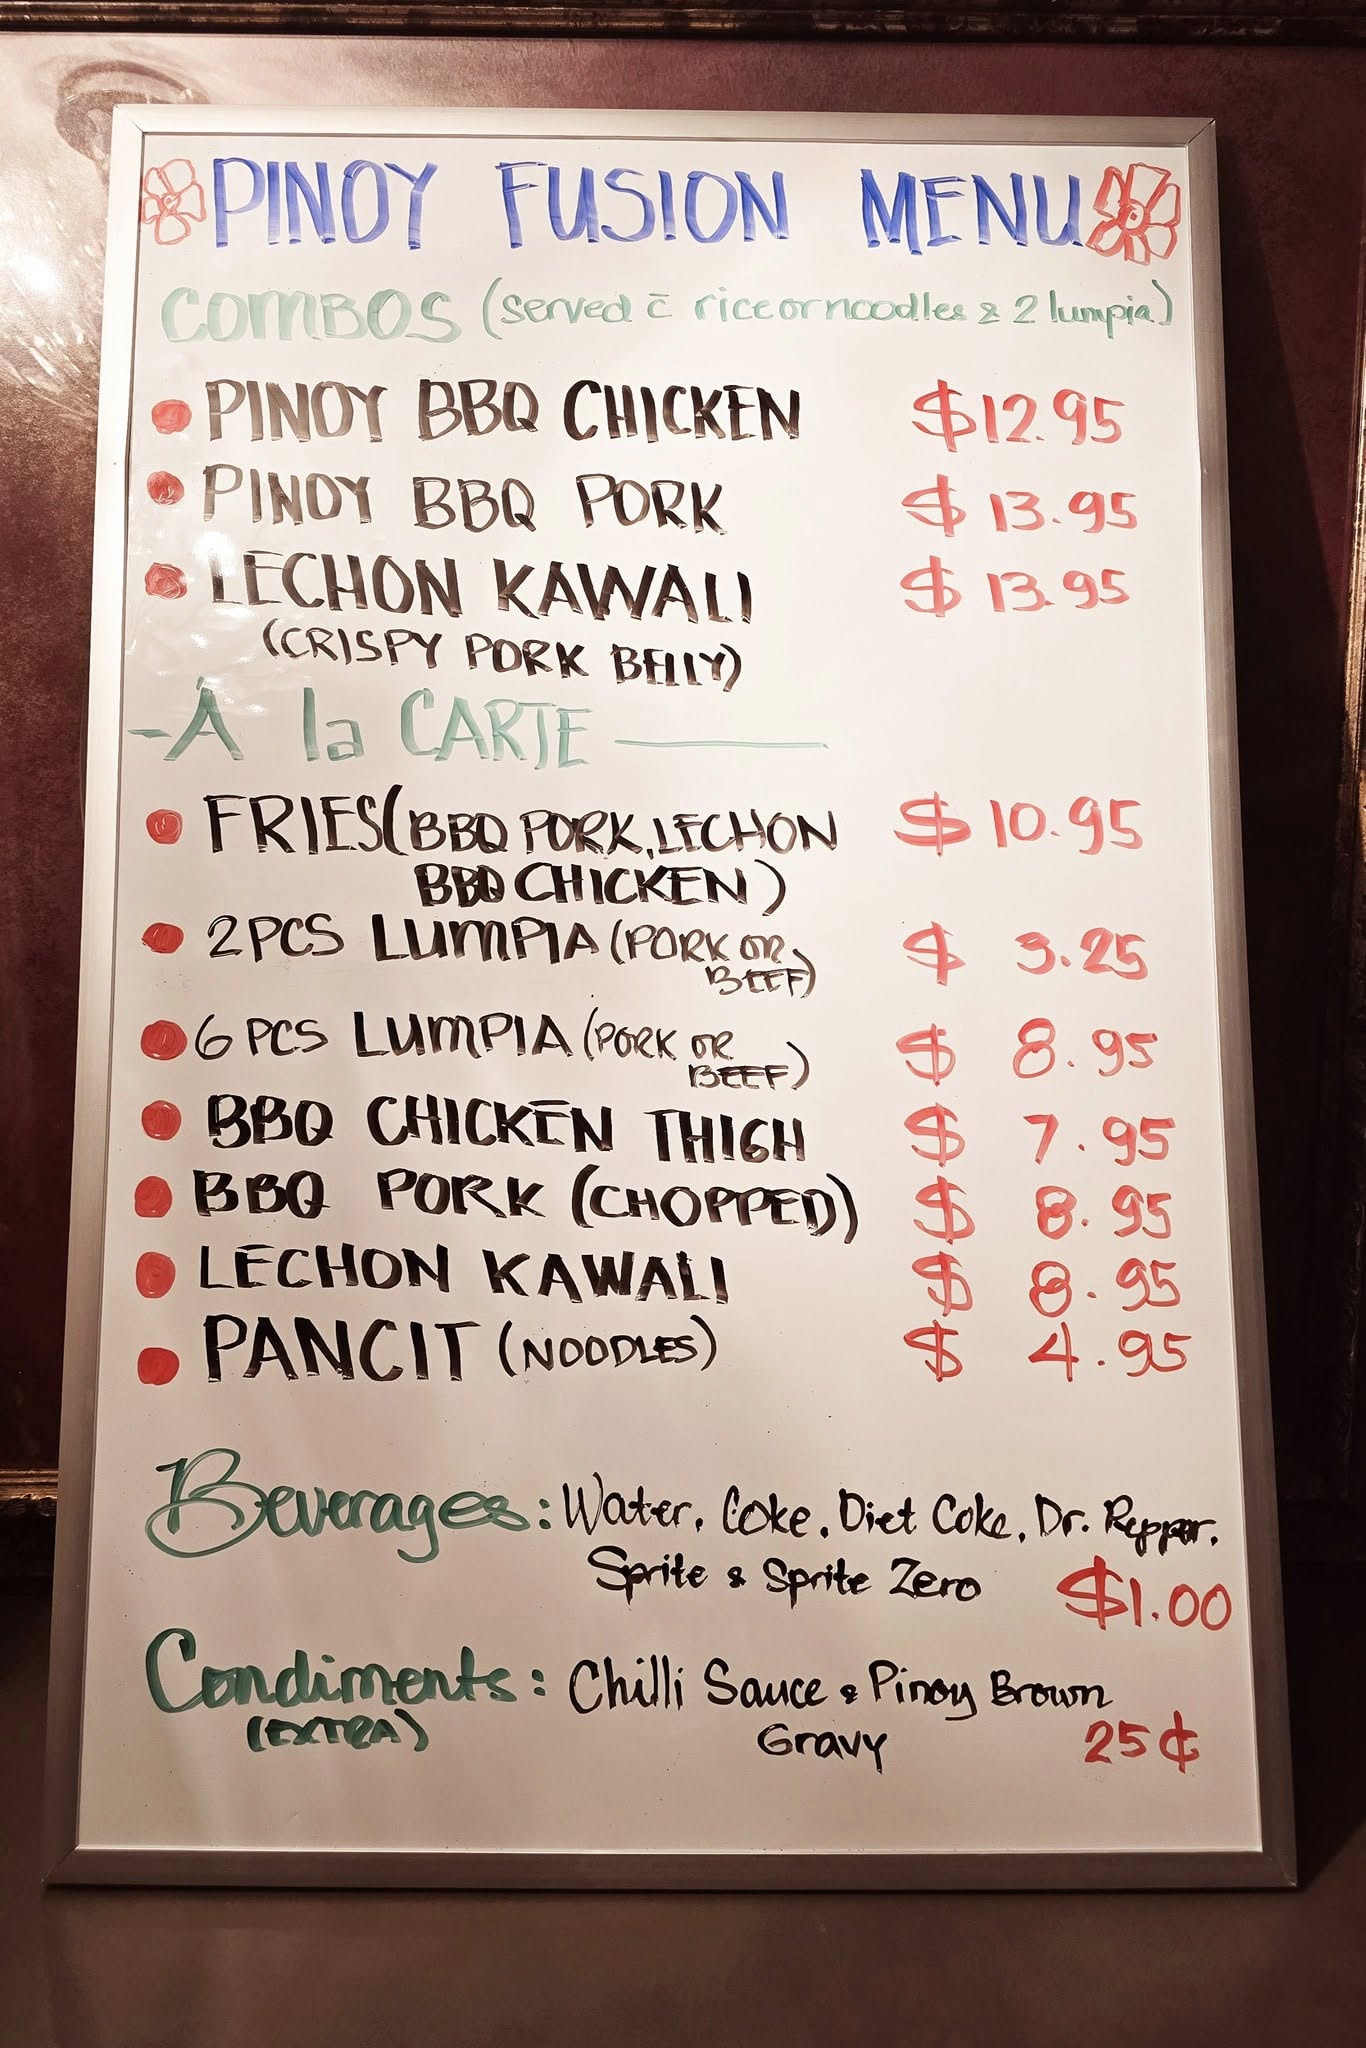 PINOY FUSION MENU
COMBOS (served c̄ rice or noodles & 2 lumpia)
PINOY BBQ CHICKEN $12.95
PINOY BBQ PORK $13.95
LECHON KAWALI $13.95
(CRISPY PORK BELLY)
-À la CARTE
FRIES (BBQ PORK, LECHON $10.95
BBQ CHICKEN)
2 PCS LUMPIA (PORK OR $3.25
BEEF)
6 PCS LUMPIA (PORK OR $8.95
BEEF)
BBQ CHICKEN THIGH $7.95
BBQ PORK (CHOPPED) $8.95
LECHON KAWALI $8.95
PANCIT (NOODLES) $4.95
Beverages: Water, Coke, Diet Coke, Dr. Pepper,
Sprite & Sprite Zero $1.00
Condiments: Chilli Sauce & Pinoy Brown
(EXTRA) Gravy 25¢